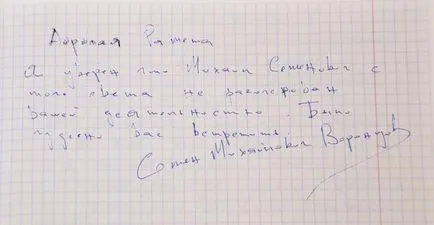 Дорогая
Я уверен что Михаил Семенович с
того света не разочарован
вашей деятельностью. Было
чудесно вас встретить.
Семен Михайлович Воронцов